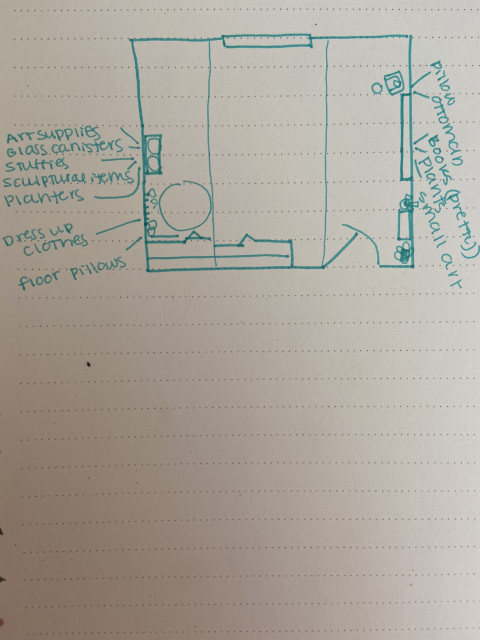 Art supplies
Glass canisters
stuffies
sculptural items
planters
Dress up
clothes
floor pillows
pillow
ottoman
Books (pretty)
Plants
small art